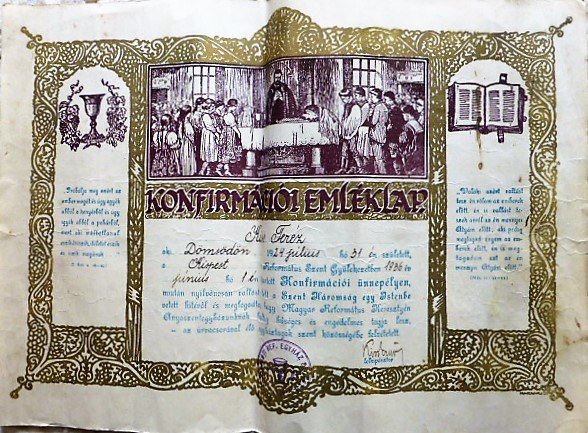 KONFIRMÁCIÓI EMLÉKLAP.
Kis Teréz
aki Dömsödön 1924 július hó 31 én született,
a Kispest Református Szent Gyülekezetben 1936 év
június hó 1 én tartott Konfirmációi ünnepélyen,
miután nyilvánosan vallást tett a Szent Háromság egy Istenbe
vetett hitéről és megfogadta, hogy Magyar Református Keresztyén
Anyaszentegyházunknak hűséges és engedelmes tagja lesz,
az úrvacsorával élő egyháztagok szent közösségébe felvétetett.
lelkipásztor
REF. EGYHÁZ
"Próbálja meg azért az
ember magát és úgy egyék
abból a kenyérből és úgy
igyék abból a pohárból,
mert aki méltatlanul
"Valaki azért vallást
tesz én rólam az emberek
előtt, én is vallást teszek
arról az én mennyei
Atyám előtt, aki pedig
megtagad engem az em-
berek előtt, én is
megtagadom azt az én
mennyei Atyám előtt."